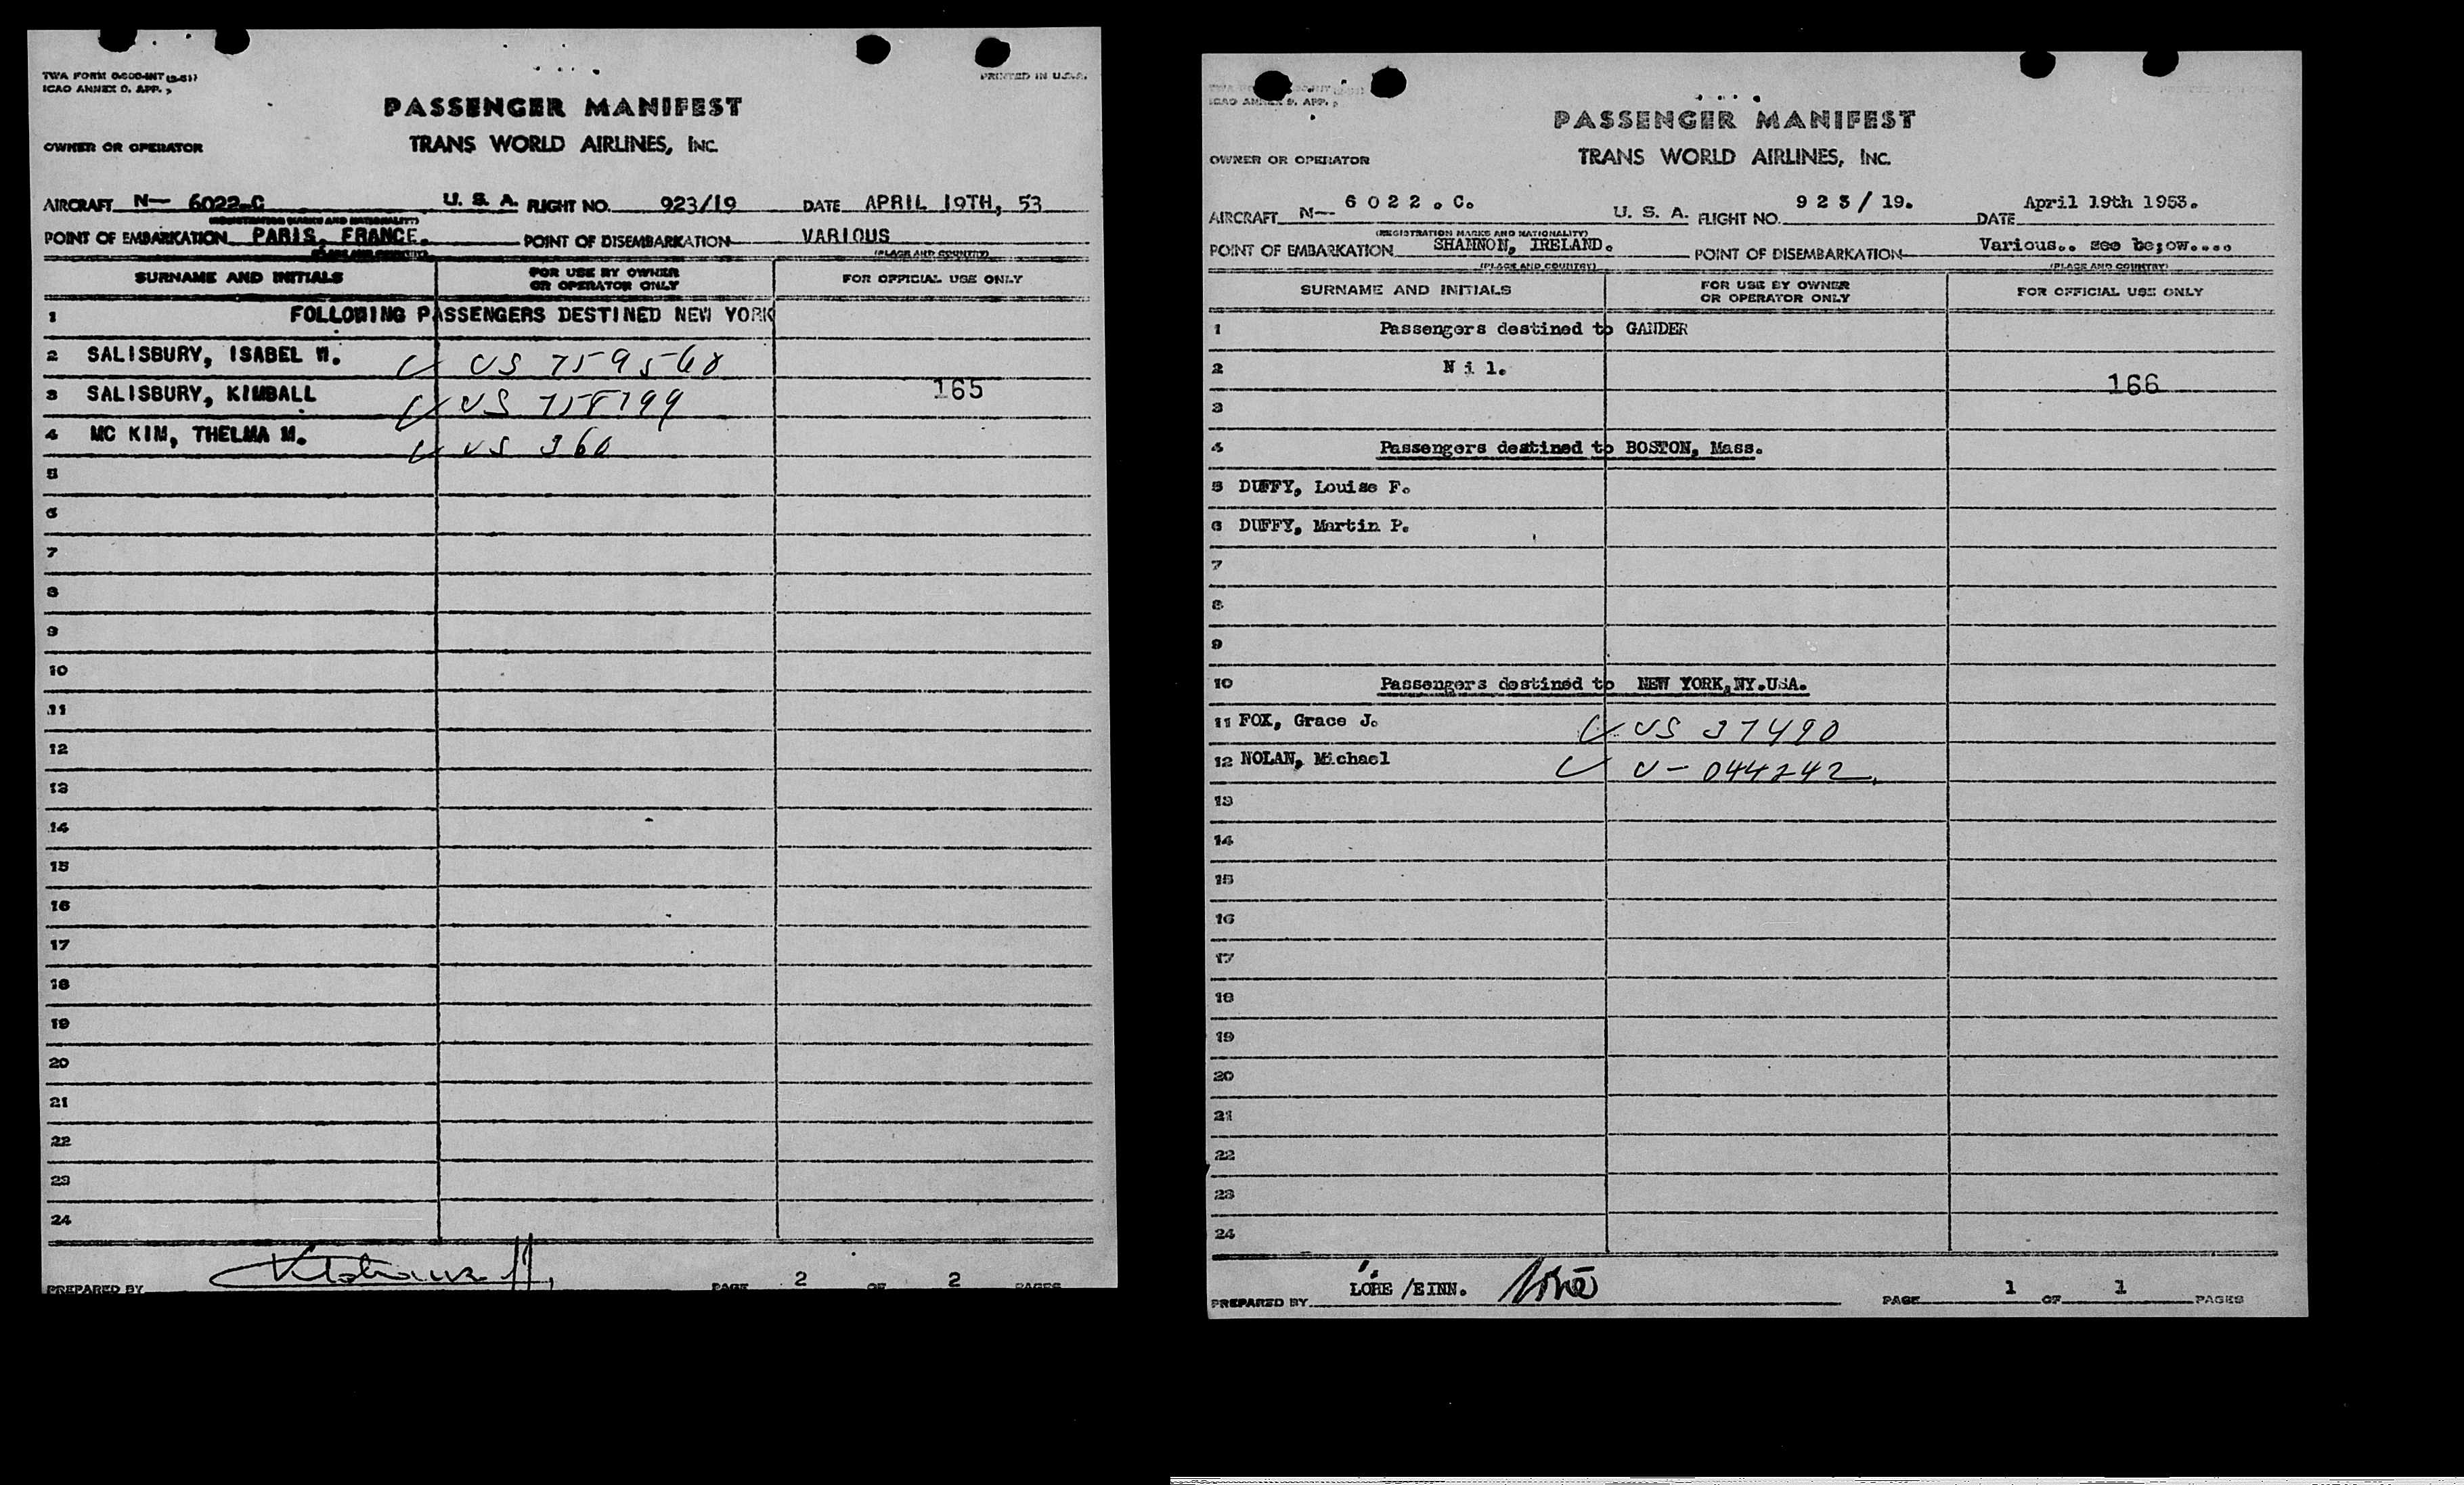 TWA FORM O-800-INT (3-51)
ICAO ANNEX 9, APP. 3
PRINTED IN U.S.A.
PASSENGER MANIFEST
OWNER OR OPERATOR TRANS WORLD AIRLINES, INC.
AIRCRAFT N— 6022-C U. S. A. FLIGHT NO. 923/19 DATE APRIL 19TH, 53
(REGISTRATION MARKS AND NATIONALITY)
POINT OF EMBARKATION PARIS, FRANCE. POINT OF DISEMBARKATION VARIOUS
(PLACE AND COUNTRY) (PLACE AND COUNTRY)
SURNAME AND INITIALS FOR USE BY OWNER OR OPERATOR ONLY FOR OFFICIAL USE ONLY
1 FOLLOWING PASSENGERS DESTINED NEW YORK
2 SALISBURY, ISABEL W. US 759560
3 SALISBURY, KIMBALL US 758799 165
4 MC KIM, THELMA M. US 360
5
6
7
8
9
10
11
12
13
14
15
16
17
18
19
20
21
22
23
24
PREPARED BY PAGE 2 OF 2 PAGES
ICAO ANNEX 9, APP. 3
PASSENGER MANIFEST
OWNER OR OPERATOR TRANS WORLD AIRLINES, INC.
AIRCRAFT N— 6 0 2 2 . C. U. S. A. FLIGHT NO. 9 2 3 / 19. DATE April 19th 1953.
(REGISTRATION MARKS AND NATIONALITY)
POINT OF EMBARKATION SHANNON, IRELAND. POINT OF DISEMBARKATION Various.. see be;ow....
(PLACE AND COUNTRY) (PLACE AND COUNTRY)
SURNAME AND INITIALS FOR USE BY OWNER OR OPERATOR ONLY FOR OFFICIAL USE ONLY
1 Passengers destined to GANDER
2 N i l. 166
3
4 Passengers destined to BOSTON, Mass.
5 DUFFY, Louise F.
6 DUFFY, Martin P.
7
8
9
10 Passengers destined to NEW YORK,NY.USA.
11 FOX, Grace J. US 37490
12 NOLAN, Michael V- 044242
13
14
15
16
17
18
19
20
21
22
23
24
PREPARED BY LOHE /EINN. PAGE 1 OF 1 PAGES